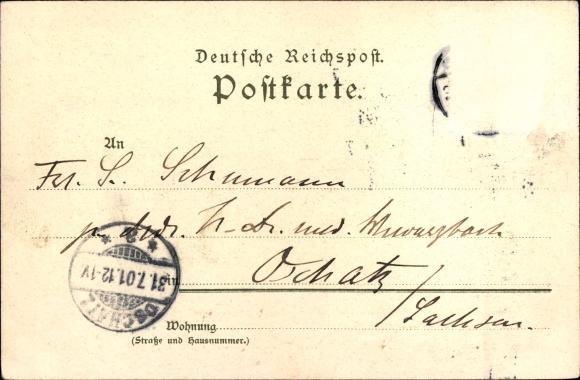 Deutsche Reichspost.
Postkarte.
An
Frl. S. Schumann
p. Adr. H. Dr. med.
in Oschatz
/Sachsen.
31.7.01.12-1V
OSCHATZ
Wohnung
(Straße und Hausnummer.)